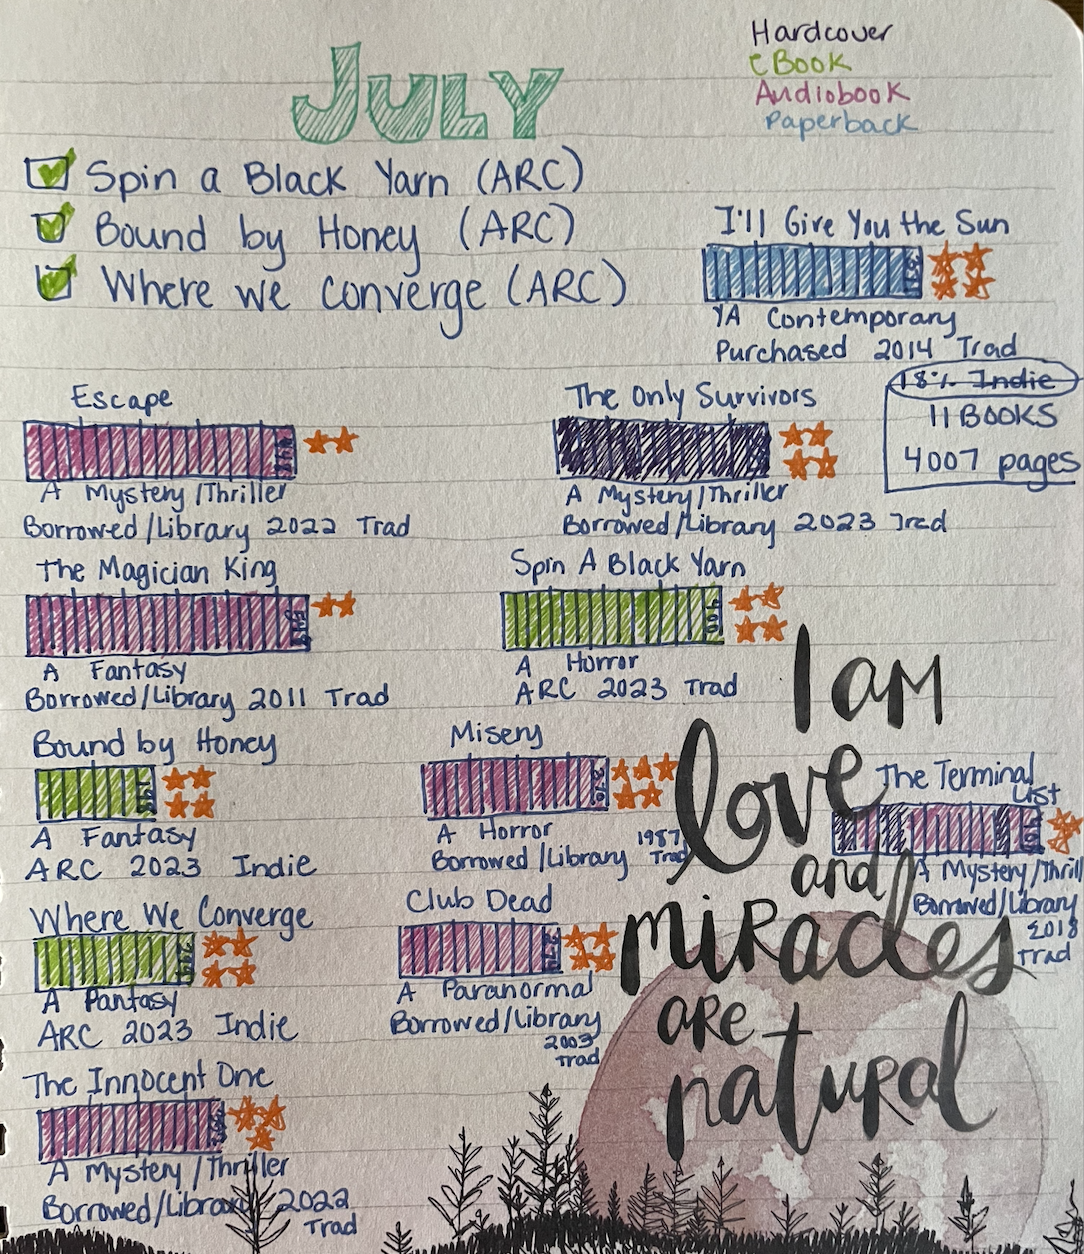 JULY
Hardcover
eBook
Audiobook
Paperback
Spin a Black Yarn (ARC)
Bound by Honey (ARC)
Where we converge (ARC)
I'll Give You the Sun
YA Contemporary
Purchased 2014 Trad
18% Indie
11 BOOKS
4007 pages
Escape
A Mystery/Thriller
Borrowed/Library 2022 Trad
The Only Survivors
A Mystery/Thriller
Borrowed/Library 2023 Trad
The Magician King
A Fantasy
Borrowed/Library 2011 Trad
Spin A Black Yarn
400
A Horror
ARC 2023 Trad
Bound by Honey
A Fantasy
ARC 2023 Indie
Misery
A Horror
1987
Borrowed/Library Trad
The Terminal
List
A Mystery/Thrill
Borrowed/Library
2018
Trad
Where We Converge
A Fantasy
ARC 2023 Indie
Club Dead
A Paranormal
Borrowed/Library
2003
Trad
The Innocent One
A Mystery/Thriller
Borrowed/Library 2022
Trad
I am
love
and
miracles
are
natural